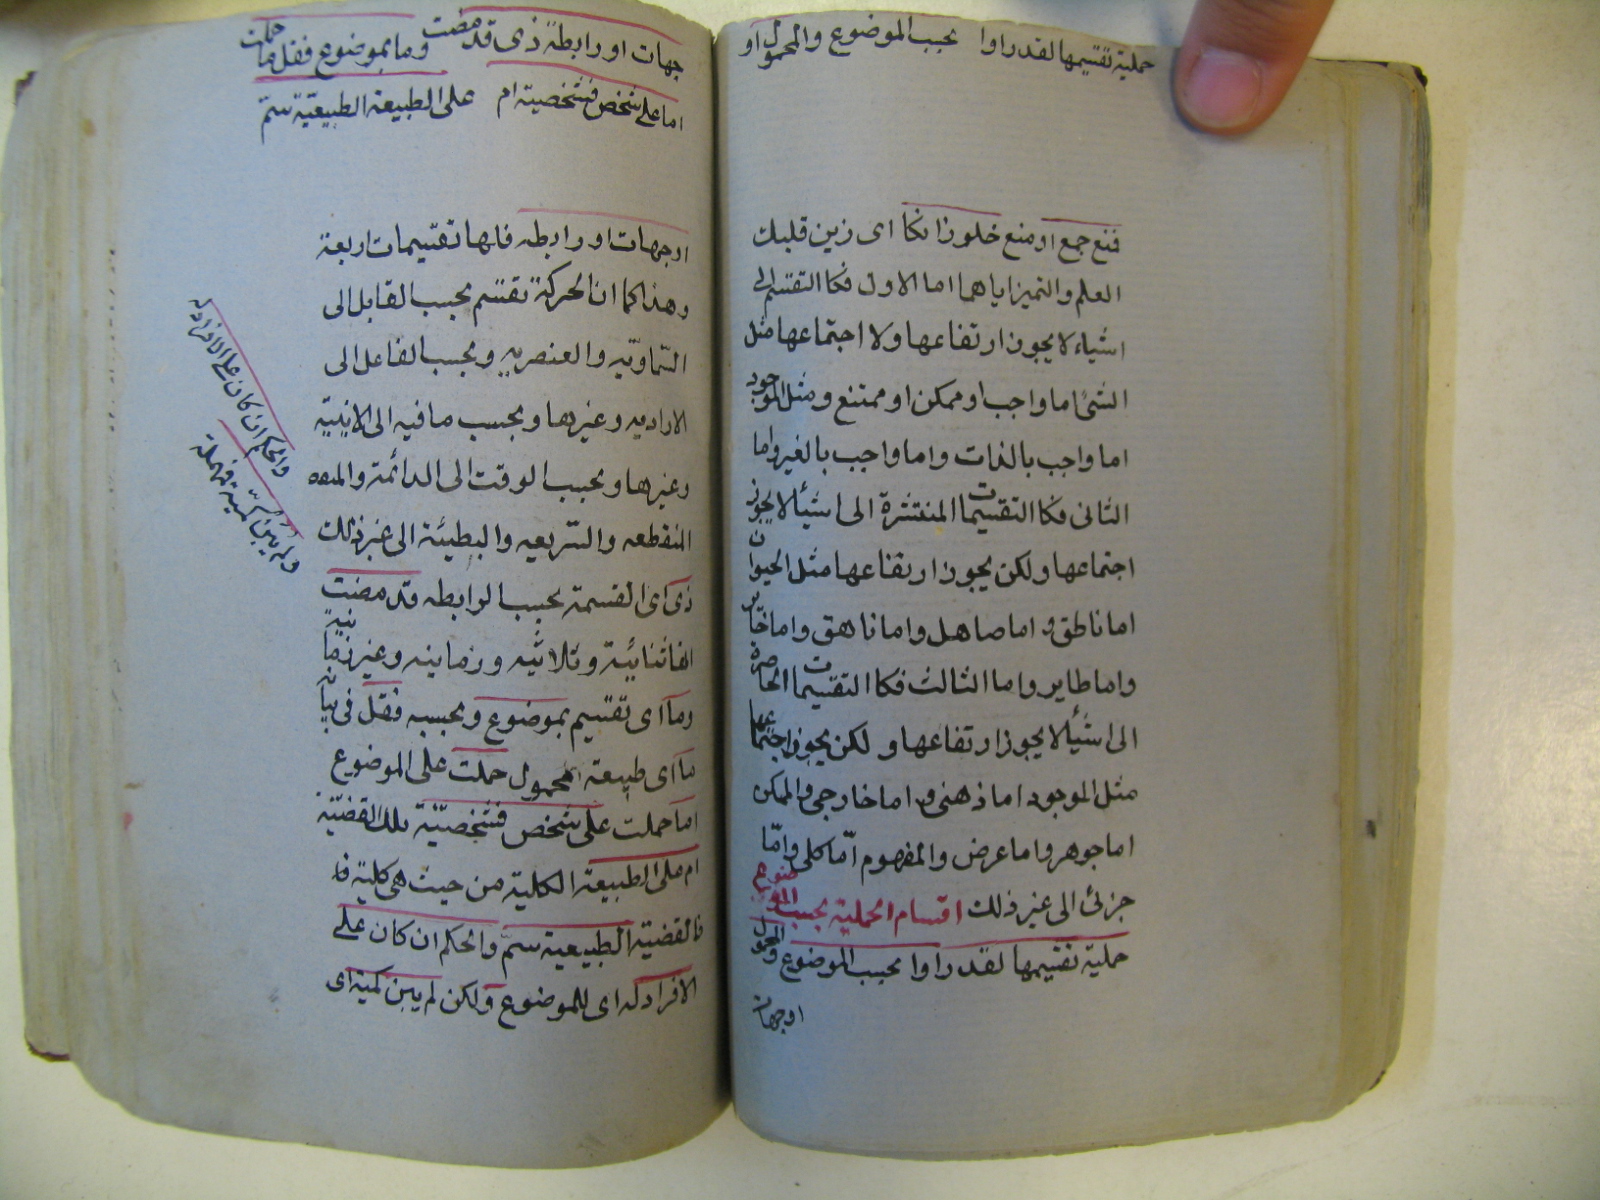 حملية تقتسيمها لقد راوا بحسب الموضوع والمحمول او
فمنع جمع او منع خلو زانكا اى زين قلبك
العلم والتميز اياهما اما الاول فكالتقسيم الى
اشياء لا يجوز ارتفاعها ولا اجتماعها مثل
الشئ اما واجب او ممكن او ممتنع ومثل الموجود
اما واجب بالذات واما واجب بالغير واما
الثانى فكالتقسيمات المنتشرة الى اشيأ لا يجوز
اجتماعها ولكن يجوز ارتفاعها مثل الحيوان
اما ناطق و اما صاهل واما ناهق واما خائر
واما طاير واما الثالث فكالتقسيمات الحاصرة
الى اشيأ لا يجوز ارتفاعها و لكن يجوز اجتماعها
مثل الموجود اما ذهنى و اما خارجى والممكن
اما جوهر واما عرض والمفهوم امّا كلى وامّا
جزئى الى غير ذلك اقسام الحملية بحسب الموضوع
حملية تقتيمها لقد راوا بحسب الموضوع والمحمول
او جهات
جهات او رابطة ذى قد مضت وما بموضوع فقل ما حملت
اما على شخص فشخصية ام على الطبيعة الطبيعيّة سمّ
او جهات او رابطه فلها تقسيمات اربعة
وهذا كما ان الحركة تقتسم بحسب القابل الى
السّماويّه والعنصريه وبحسب الفاعل الى
الاراديه وغيرها وبحسب ما فيه الى الاينيّة
وغيرها وبحسب الوقت الى الدائمة و
المنقطعه والسّريعه والبطيئة الى غير ذلك
ذى اى القسمة بحسب الرابطه قد مضت
الفا ثنائيّة وثلاثيه و زمانيه وغير زمانيه
وما اى تقتسيم بموضوع وبحسبه فقل فى بيان
ما اى طبيعة محمول حملت على الموضوع
اما حملت على شخص فشخصيّة تلك القضيّة
ام على الطبيعة الكلية من حيث هى كلية فا
فالقضية الطبيعية سمّ والحكم ان كان على
الافراد له اى للموضوع ولكن لم يبن كمية اى
والحكم ان كان على الافراد له
ولم يبن كمّية فمهملة